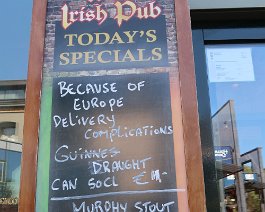 Irish Pub
TODAY'S
SPECIALS
BECAUSE OF
EUROPE
DELIVERY
COMPLICATIONS
GUINNES
DRAUGHT
CAN 50CL €4
MURPHY STOUT